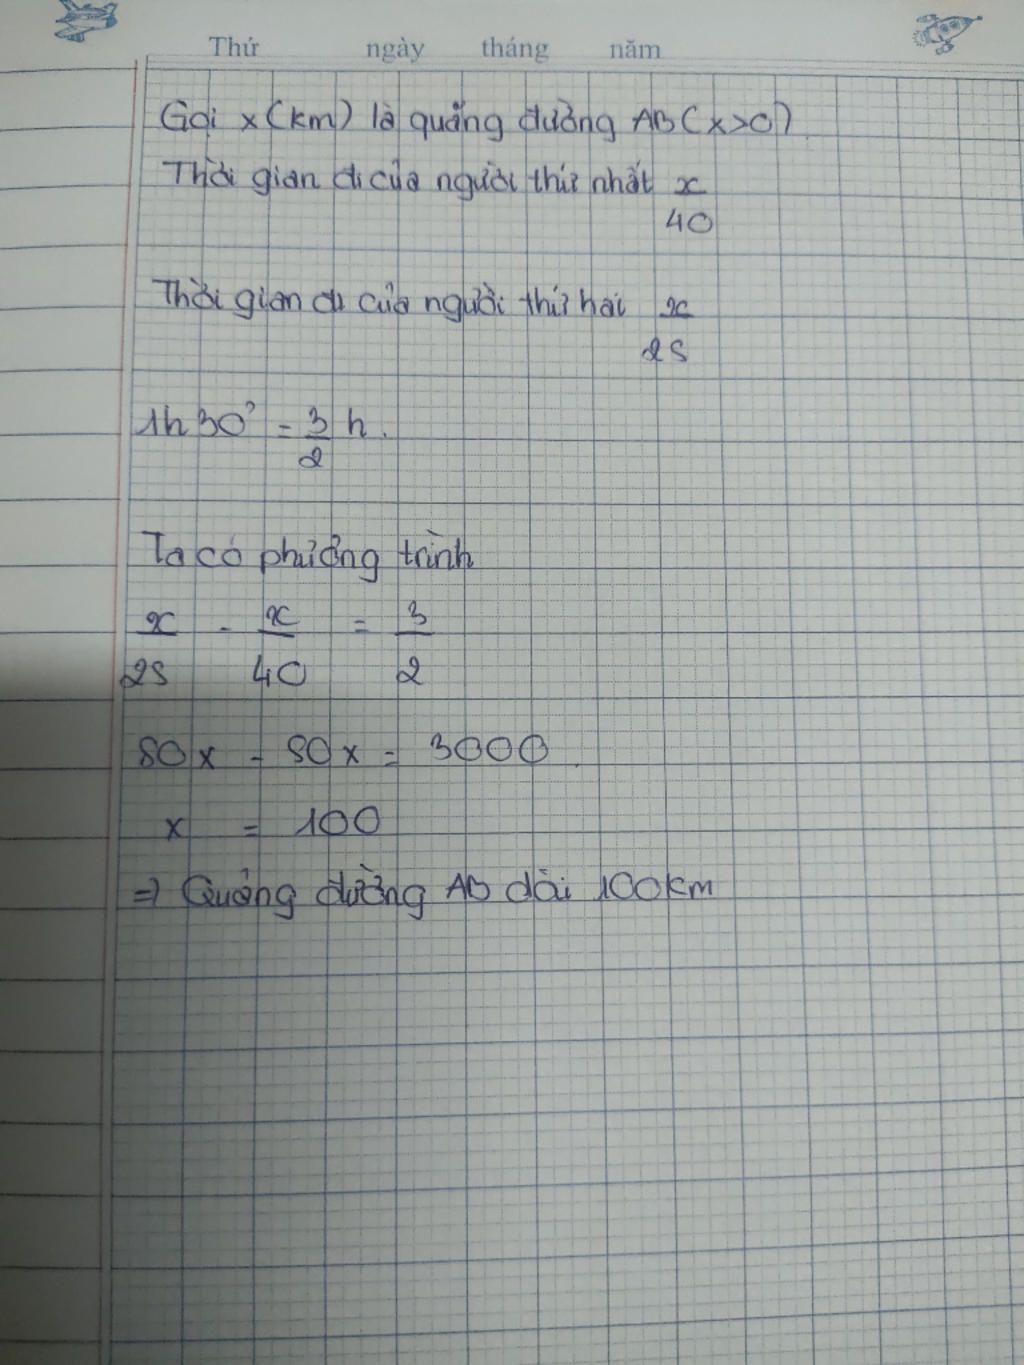 Thứ ngày tháng năm
Gọi x (km) là quãng đường AB (x>0)
Thời gian đi của người thứ nhất x/40
Thời gian đi của người thứ hai x/25
1h30' = 3/2 h.
Ta có phương trình
x/25 - x/40 = 3/2
80x - 50x = 3000
x = 100
=> Quảng đường AB dài 100km